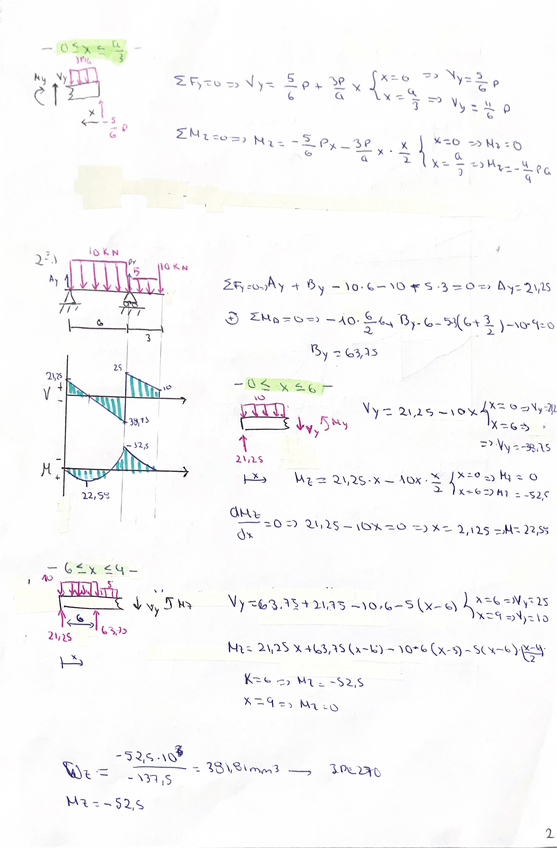 - 0 ≤ x ≤ a/3 -
My Vy
x
5/6 P
ΣFy=0 => Vy = 5/6 P + 3P/a x { x=0 => Vy = 5/6 P
x = a/3 => Vy = 11/6 P
ΣMz=0 => Mz = -5/6 Px - 3P/a x · x/2 { x=0 => Mz=0
x = a/3 => Mz = -4/9 Pa
10 KN 5 10KN
Ay
6 3
ΣFy=0 => Ay + By - 10·6 - 10 - 5·3 = 0 => Ay = 21,25
ΣMA=0 => -10·6/2·6+ By·6 - 5·3(6+3/2) - 10·9=0
By = 63,75
21,25 25 10
V + -
-38,75
-52,5
M - +
22,59
- 0 ≤ x ≤ 6 -
10
Vy My
21,25
x
Vy = 21,25 - 10x { x=0 => Vy=21,2
x=6 =>
=> Vy = -38,75
Mz = 21,25·x - 10x · x/2 { x=0 => Mz = 0
x=6 => Mz = -52,5
dMz/dx = 0 => 21,25 - 10x = 0 => x = 2,125 => M = 22,55
- 6 ≤ x ≤ 9 -
10 5
Vy Mz
6
21,25 63,75
x
Vy = 63,75 + 21,75 - 10·6 - 5(x-6) { x=6 => Vy = 25
x=9 => Vy = 10
Mz = 21,25 x + 63,75 (x-6) - 10·6 (x-3) - 5(x-6)·(x-4/2)
X=6 => Mz = -52,5
x=9 => Mz = 0
Wz = -52,5·10³/-137,5 = 381,81 mm³ → IPE270
Mz = -52,5
2